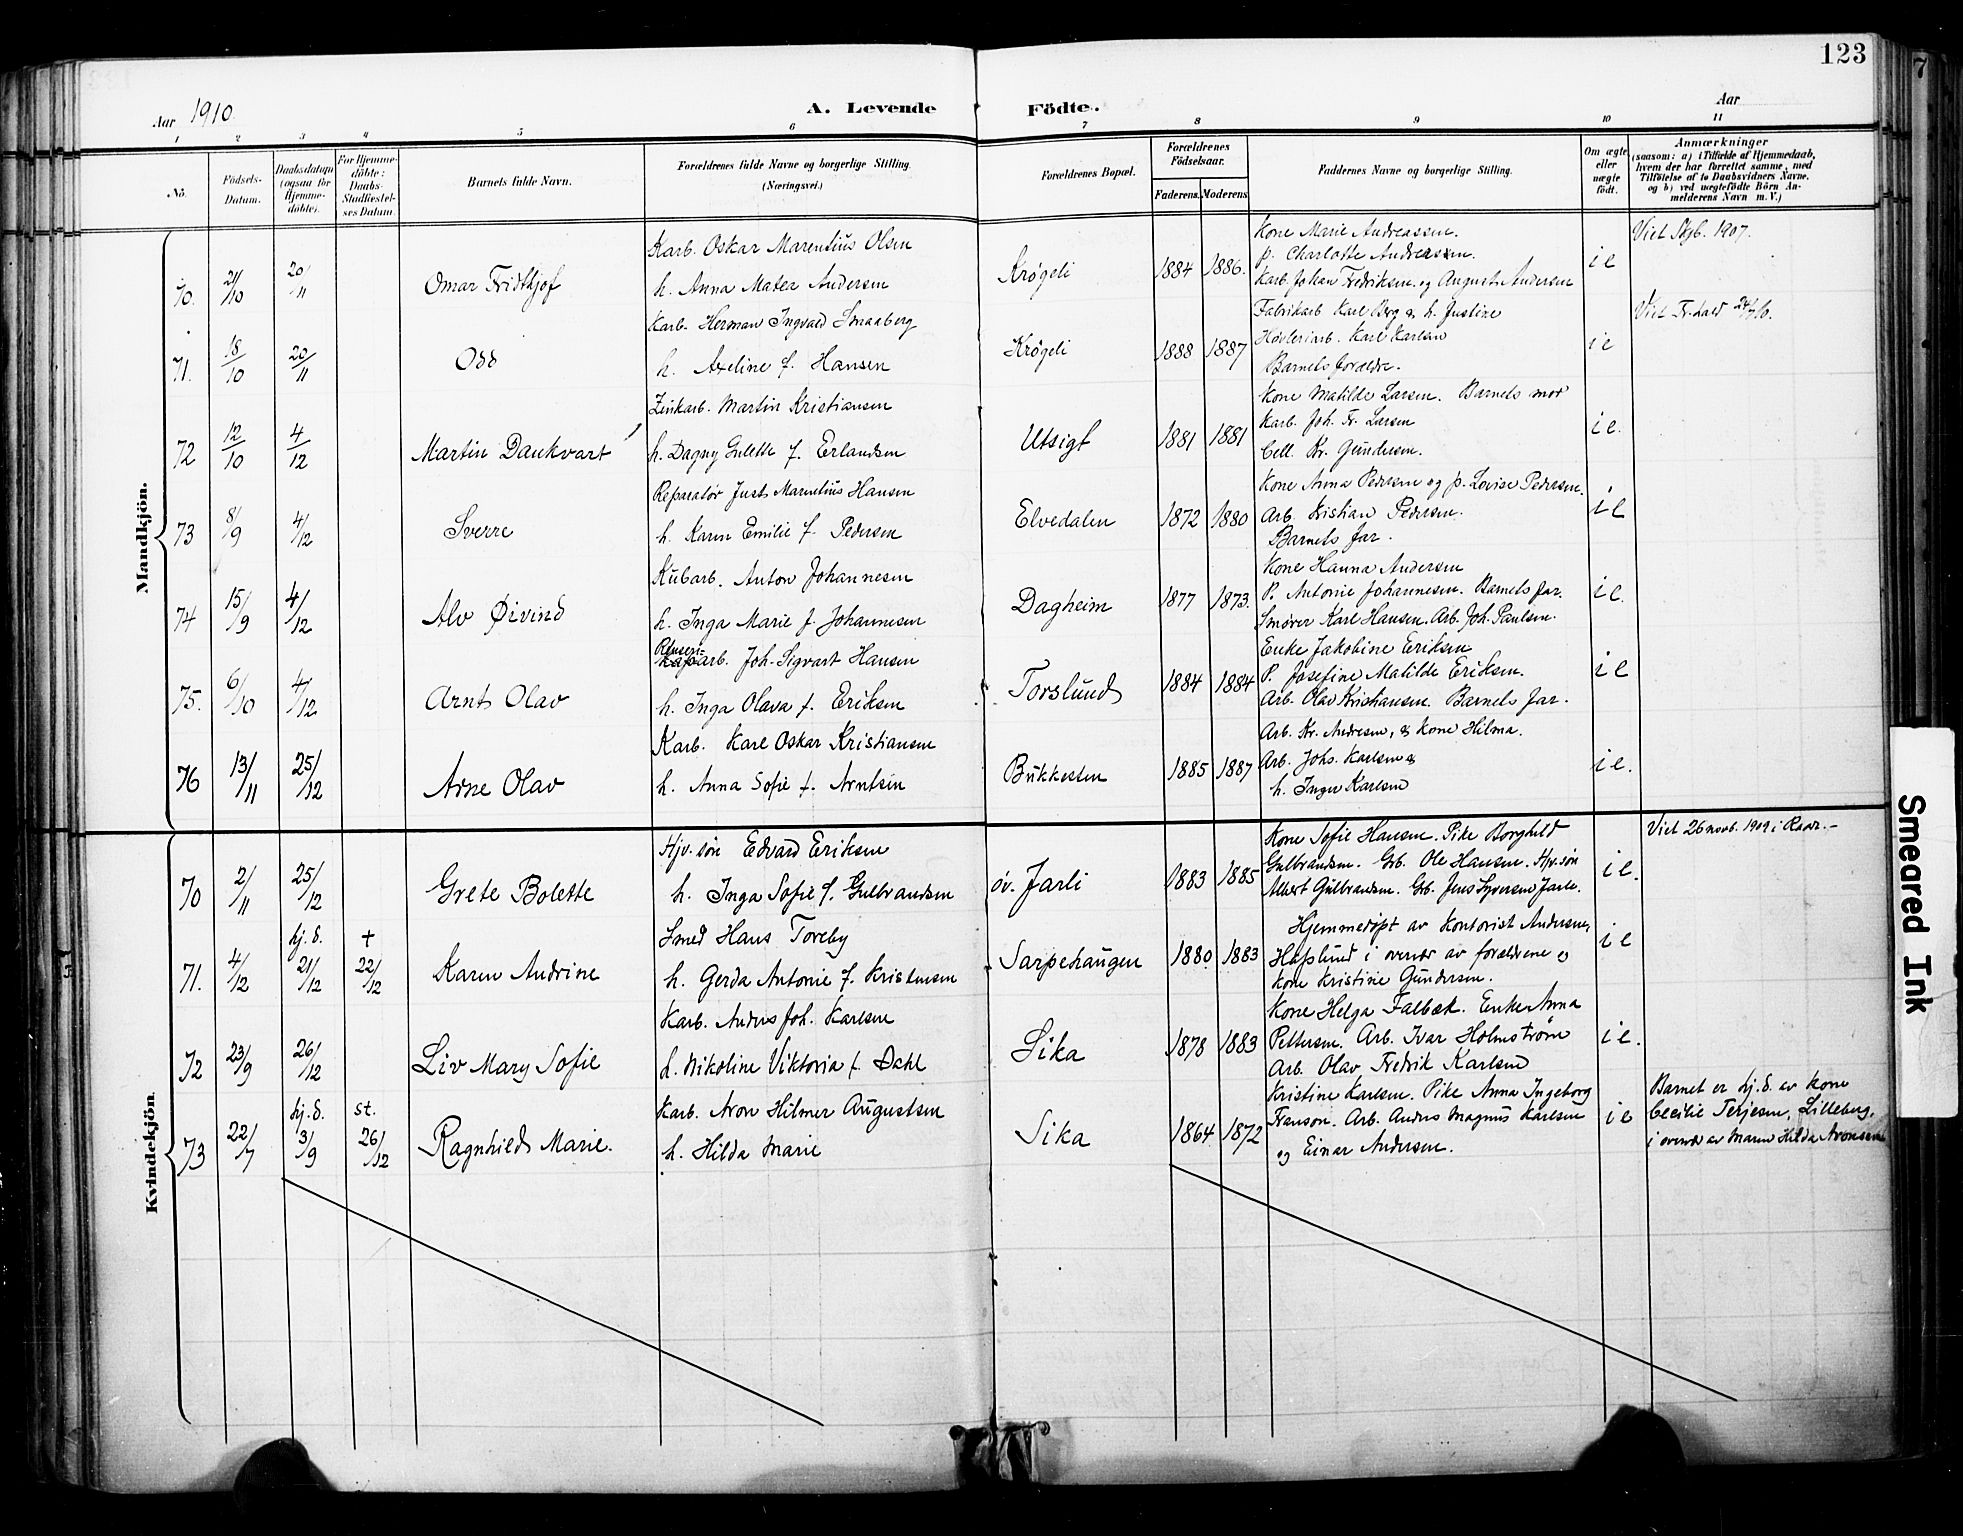 123
7
Aar 1910.
A. Levende Födte.
Aar
1 2 3 4 5 6 7 8 9 10 11
No.
Födsels-Datum.
Daabsdatum (ogsaa for Hjemme-döbte).
For Hjemme-döbte: Daabs-Stadfæstel-ses Datum.
Barnets fulde Navn.
Forældrenes fulde Navne og borgerlige Stilling. (Næringsvei.)
Forældrenes Bopæl.
Forældrenes Födselsaar.
Faderens. Moderens.
Faddernes Navne og borgerlige Stilling.
Om ægte eller uægte födt.
Anmærkninger
(saasom: a) i Tilfælde af Hjemmedaab,
hvem der har forrettet samme, med
Tilföielse af to Daabsvidners Navne.
og b) ved uægtefödte Börn An-
melderens Navn m. V.)
Mandkjön.
Karb. Oskar Marentius Olsen
Kone Marie Andreassen.
Viet Skjb. 1907.
70. 21/10 20/11 Omar Fridtjof
h. Anna Matea Andersen
Krøgeli 1884 1886.
p. Charlotte Andreassen.
Karb. Johan Fredriksen. og August Andersen
i e
Karb. Herman Ingvald Smaaberg
Fabrikarb Karl Berg & h. Justine
Viet Fr.hald 24/7 10.
71. 18/10 20/11 Odd
h. Axeline f. Hansen
Krøgeli 1888 1887
Høvleriarb. Karl Karlsen
Barnets forældre.
i e
Zinkarb. Martin Kristiansen
Kone Matilde Larsen. Barnets mor
72 12/10 4/12 Martin Dankvart
h. Dagny Gulette f. Erlandsen
Utsigt 1881 1881
Karb. Joh. Fr. Larsen
Cell. Kr. Gundersen.
i e.
Reparatør Just Marentius Hansen
Kone Anna Pedersen og p. Lovise Pedersen.
73 8/9 4/12 Sverre
h. Karen Emilie f. Pedersen
Elvedalen 1872 1880
Arb. Kristian Pedersen.
Barnets far.
i e
Kubarb. Anton Johannesen
Kone Hanna Andersen
74 15/9 4/12 Alv Øivind
h. Inga Marie f. Johannesen
Dagheim 1877 1873.
P. Antonie Johannesen. Barnets far.
Smører Karl Hansen. Arb. Joh. Paulsen.
i e.
Renseri-
arb. Joh. Sigvart Hansen
Enke Jakobine Eriksen
75. 6/10 4/12 Arnt Olav
h. Inga Olava f. Eriksen
Torslund 1884 1884
P. Josefine Matilde Eriksen.
Arb. Olav Kristiansen. Barnets far.
i e
Karb. Karl Oskar Kristiansen
Arb. Kr. Andresen, & Kone Hilma.
76 13/11 25/12 Arne Olav
h. Anna Sofie f. Arntsen
Bukkesten 1885 1887
Arb. Johs. Karlsen &
h. Inger Karlsen
i e.
Kvindekjön.
Hjv. søn Edvard Eriksen
Kone Sofie Hansen. Pike Borghild
Viet 26 novb. 1909 i Raar.-
70 2/11 25/12 Grete Bolette
h. Inga Sofie f. Gulbrandsen
öv. Jarli 1883 1885
Gulbrandsen. Grb. Ole Hansen. Hjv. søn
Albert Gulbrandsen. Grb. Jens Syversen Jarli.
i e.
Smed Hans Toreby
Hjemmedøpt av Kontorist Andersen,
71. 4/12 hj.d. 21/12 + 22/12 Karen Andrine
h. Gerda Antonie f. Kristensen
Sarpehaugen 1880 1883
Hafslund i overvær av forældrene og
Kone Kristine Gundersen.
i e
Karb. Anders Joh. Karlsen
Kone Helga Falbæk. Enke Anna
72 23/9 26/12 Liv Mary Sofie
h. Nikoline Viktoria f. Dahl
Sika 1878 1883
Pettersen. Arb. Ivar Holmstrøm
Arb. Olav Fredrik Karlsen
i e.
Karb. Aron Hilmer Augustsen
Kristine Karlsen. Pike Anna Ingeborg
73 22/7 hj.d. 3/9 st. 26/12 Ragnhild Marie.
h. Hilda Marie
Sika 1864 1872
Franson. Arb. Anders Magnus Karlsen
og Einar Andersen.
i e
Barnet er hj.d. av kone
Cecilie Terjesen, Lilleberg,
i overvær av Maren Hilda Aronsen
Smeared Ink